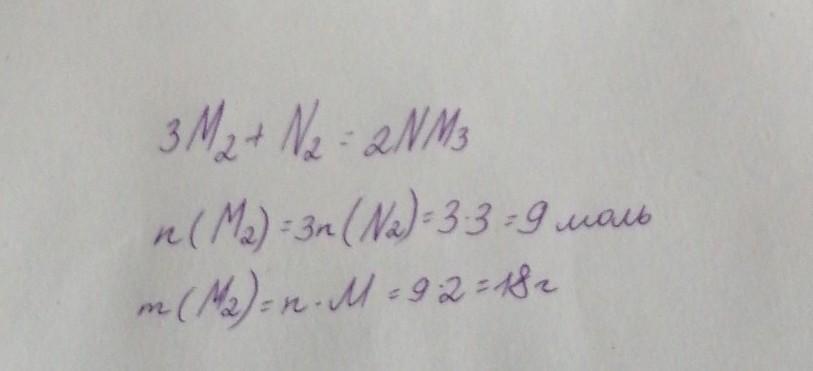 3M₂ + N₂ = 2NM₃
n(M₂) = 3n(N₂) = 3·3 = 9 моль
m(M₂) = n·M = 9·2 = 18г